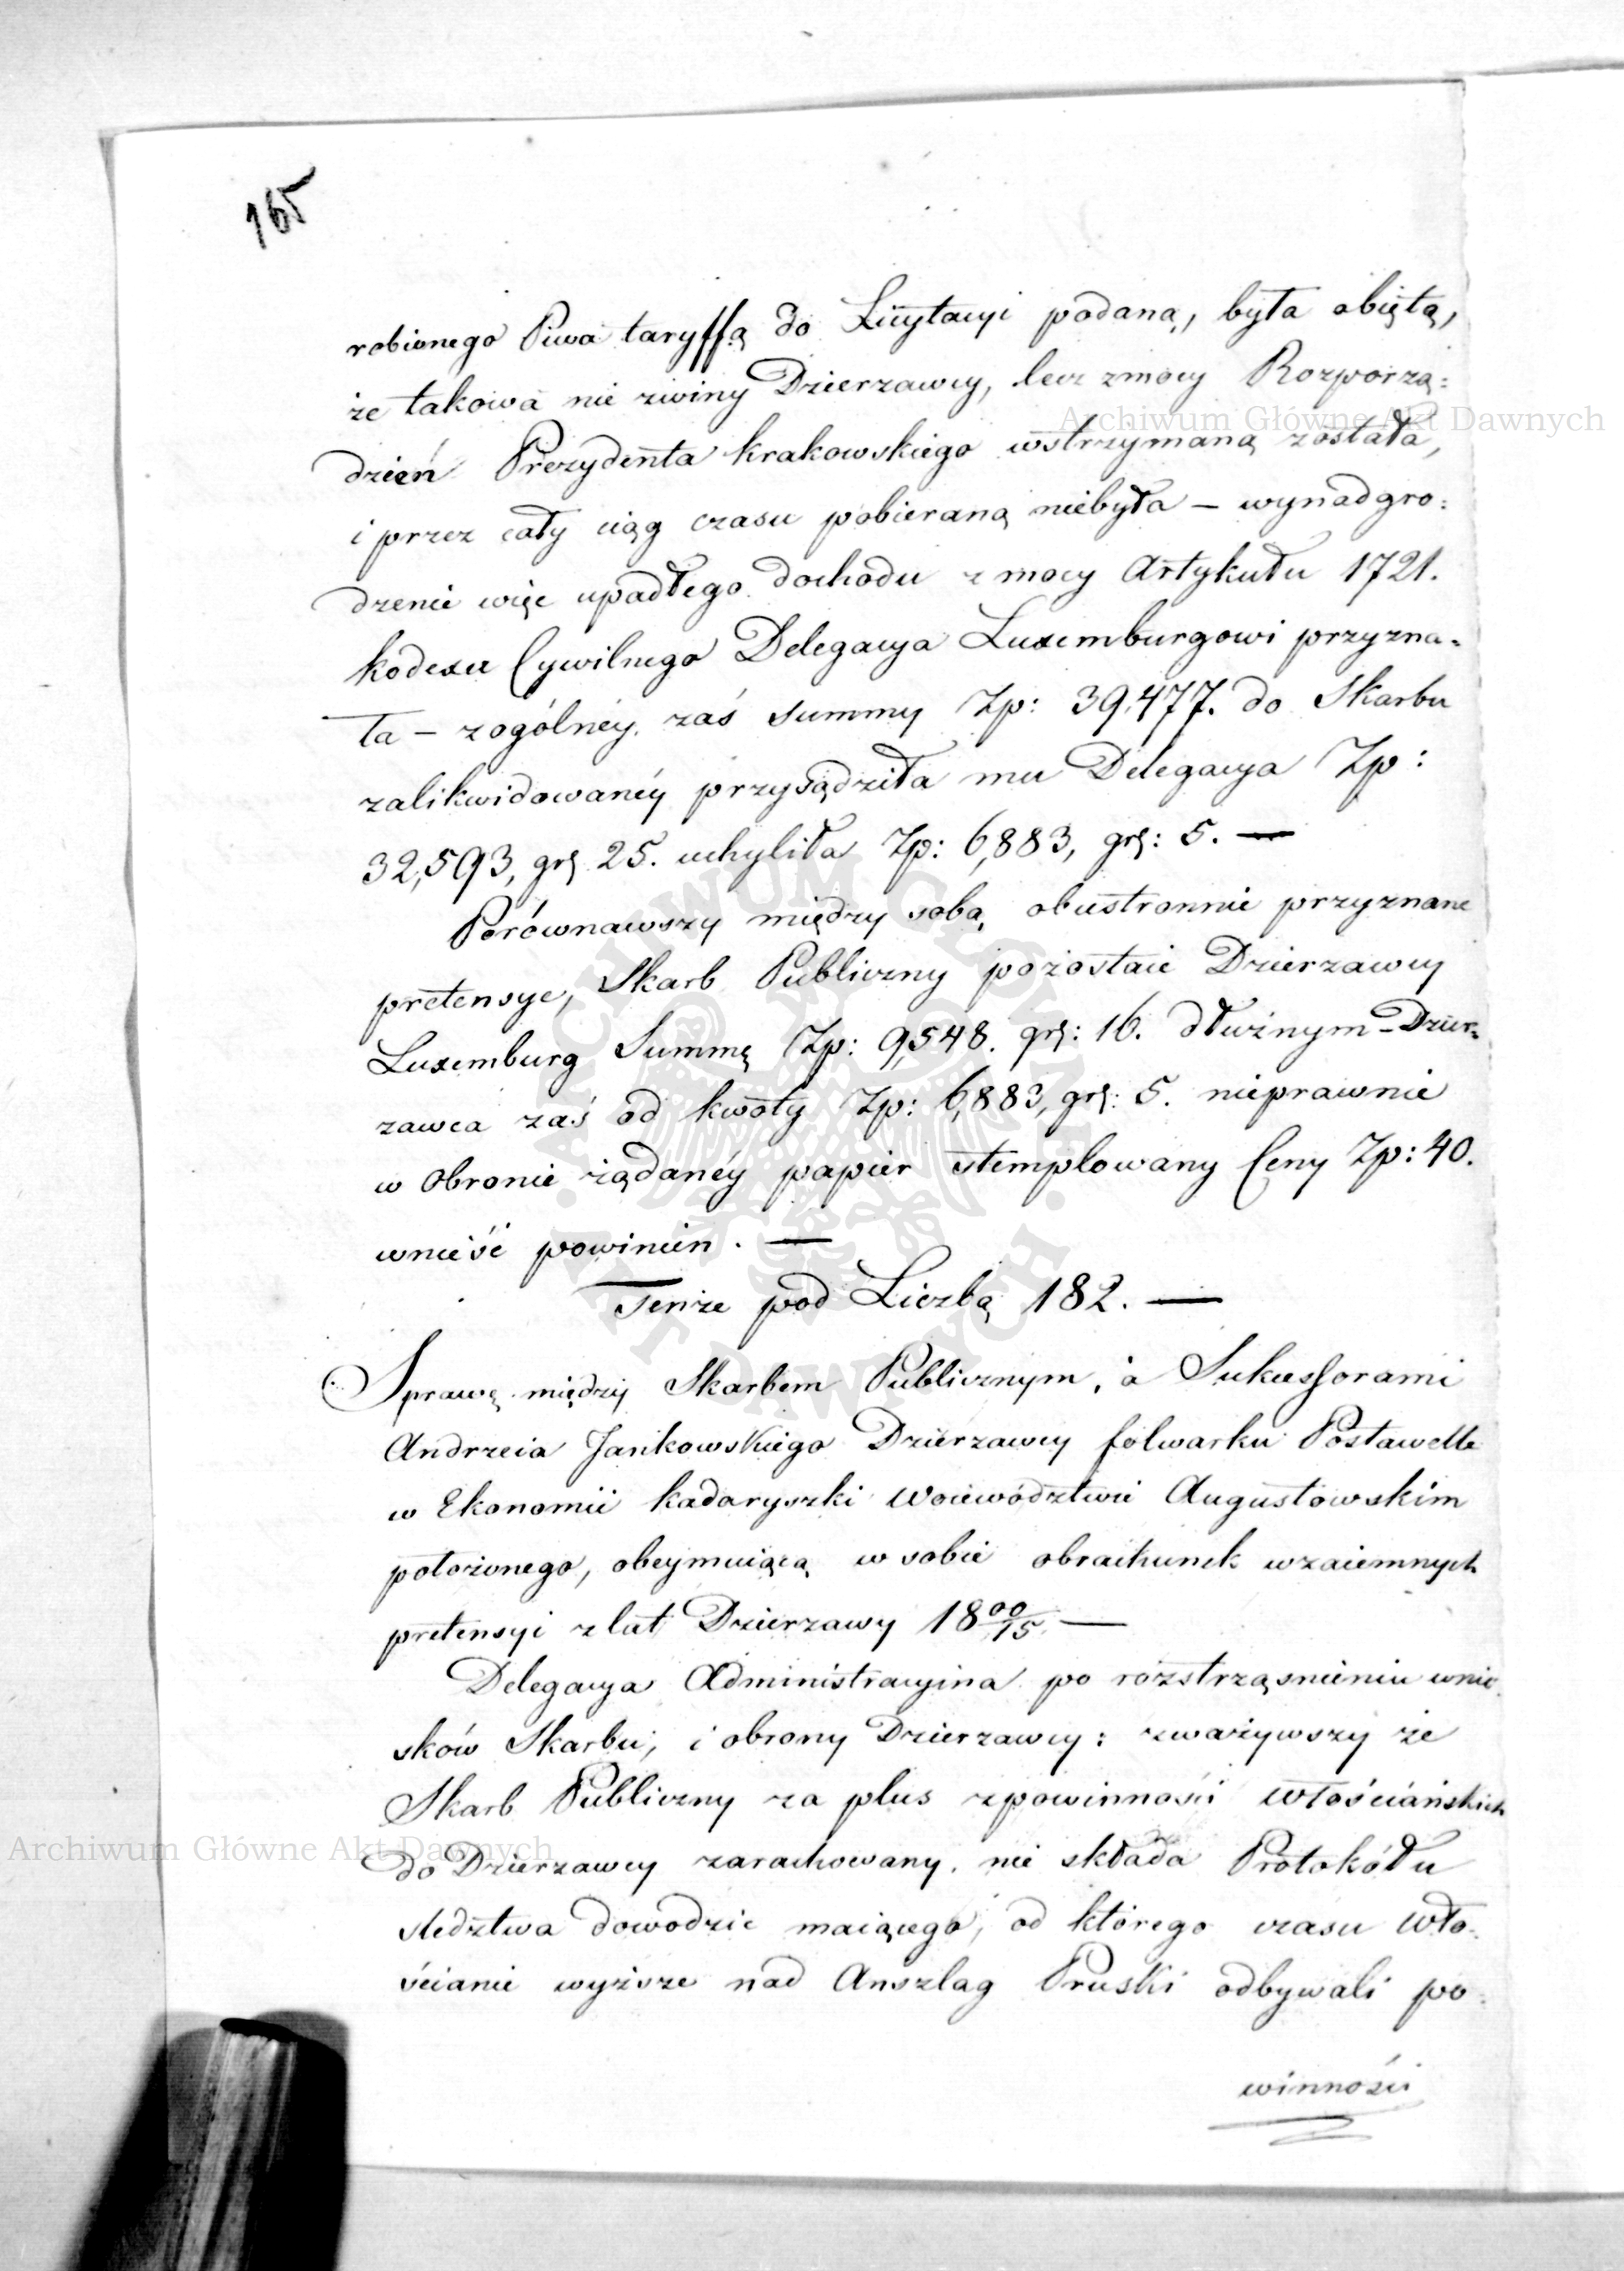 165
robionego Piwa taryffą do Licytacyi podaną, była obiętą,
że takowa nie zwiny Dzierzawcy, lecz zmocy Rozporzą:
dzień Prezydenta krakowskiego wstrzymaną została,
i przez cały ciąg czasu pobieraną niebyła – wynadgro:
dzenie więc upadłego dochodu z mocy Artykułu 1721.
kodexu Cywilnego Delegacya Luxemburgowi przyzna-
ła – zogólney zaś summy Zp: 39,477. do Skarbu
zalikwidowanéy przysądziła mu Delegacya Zp:
32,593, gr: 25. uchyliła Zp: 6,883, gr: 5. —
Porównawszy między sobą obustronnie przyznane
pretensye, Skarb Publiczny pozostaie Dzierzawcy
Luxemburg Summę Zp: 9,548. gr: 16. dłużnym – Dzier-
zawca zaś od kwoty Zp: 6,883, gr: 5. nieprawnie
w obronie żądanéy papier stemplowany Ceny Zp: 40.
wnieść powinien. —
Tenże pod Liczbą 182. —
Sprawę między Skarbem Publicznym, a Sukcessorami
Andrzeia Jankowskiego Dzierzawcy folwarku Postawelle
w Ekonomii kadaryszki Woiewództwie Augustowskim
położonego, obeymuiącą w sobie obrachunek wzaiemnych
pretensyi z lat Dzierzawy 1800/15. —
Delegacya Administracyina po roztrząśnieniu wnio-
sków Skarbu, i obrony Dzierzawcy: zważywszy że
Skarb Publiczny za plus zpowinności Włościańskich
do Dzierzawcy zarachowany, nie składa Protokółu
śledztwa dowodzić maiącego, od którego czasu Wło-
ścianie wyższe nad Anszlag Pruski odbywali po-
winności
Archiwum Główne Akt Dawnych
Archiwum Główne Akt Dawnych
ARCHIWUM GŁÓWNE AKT DAWNYCH